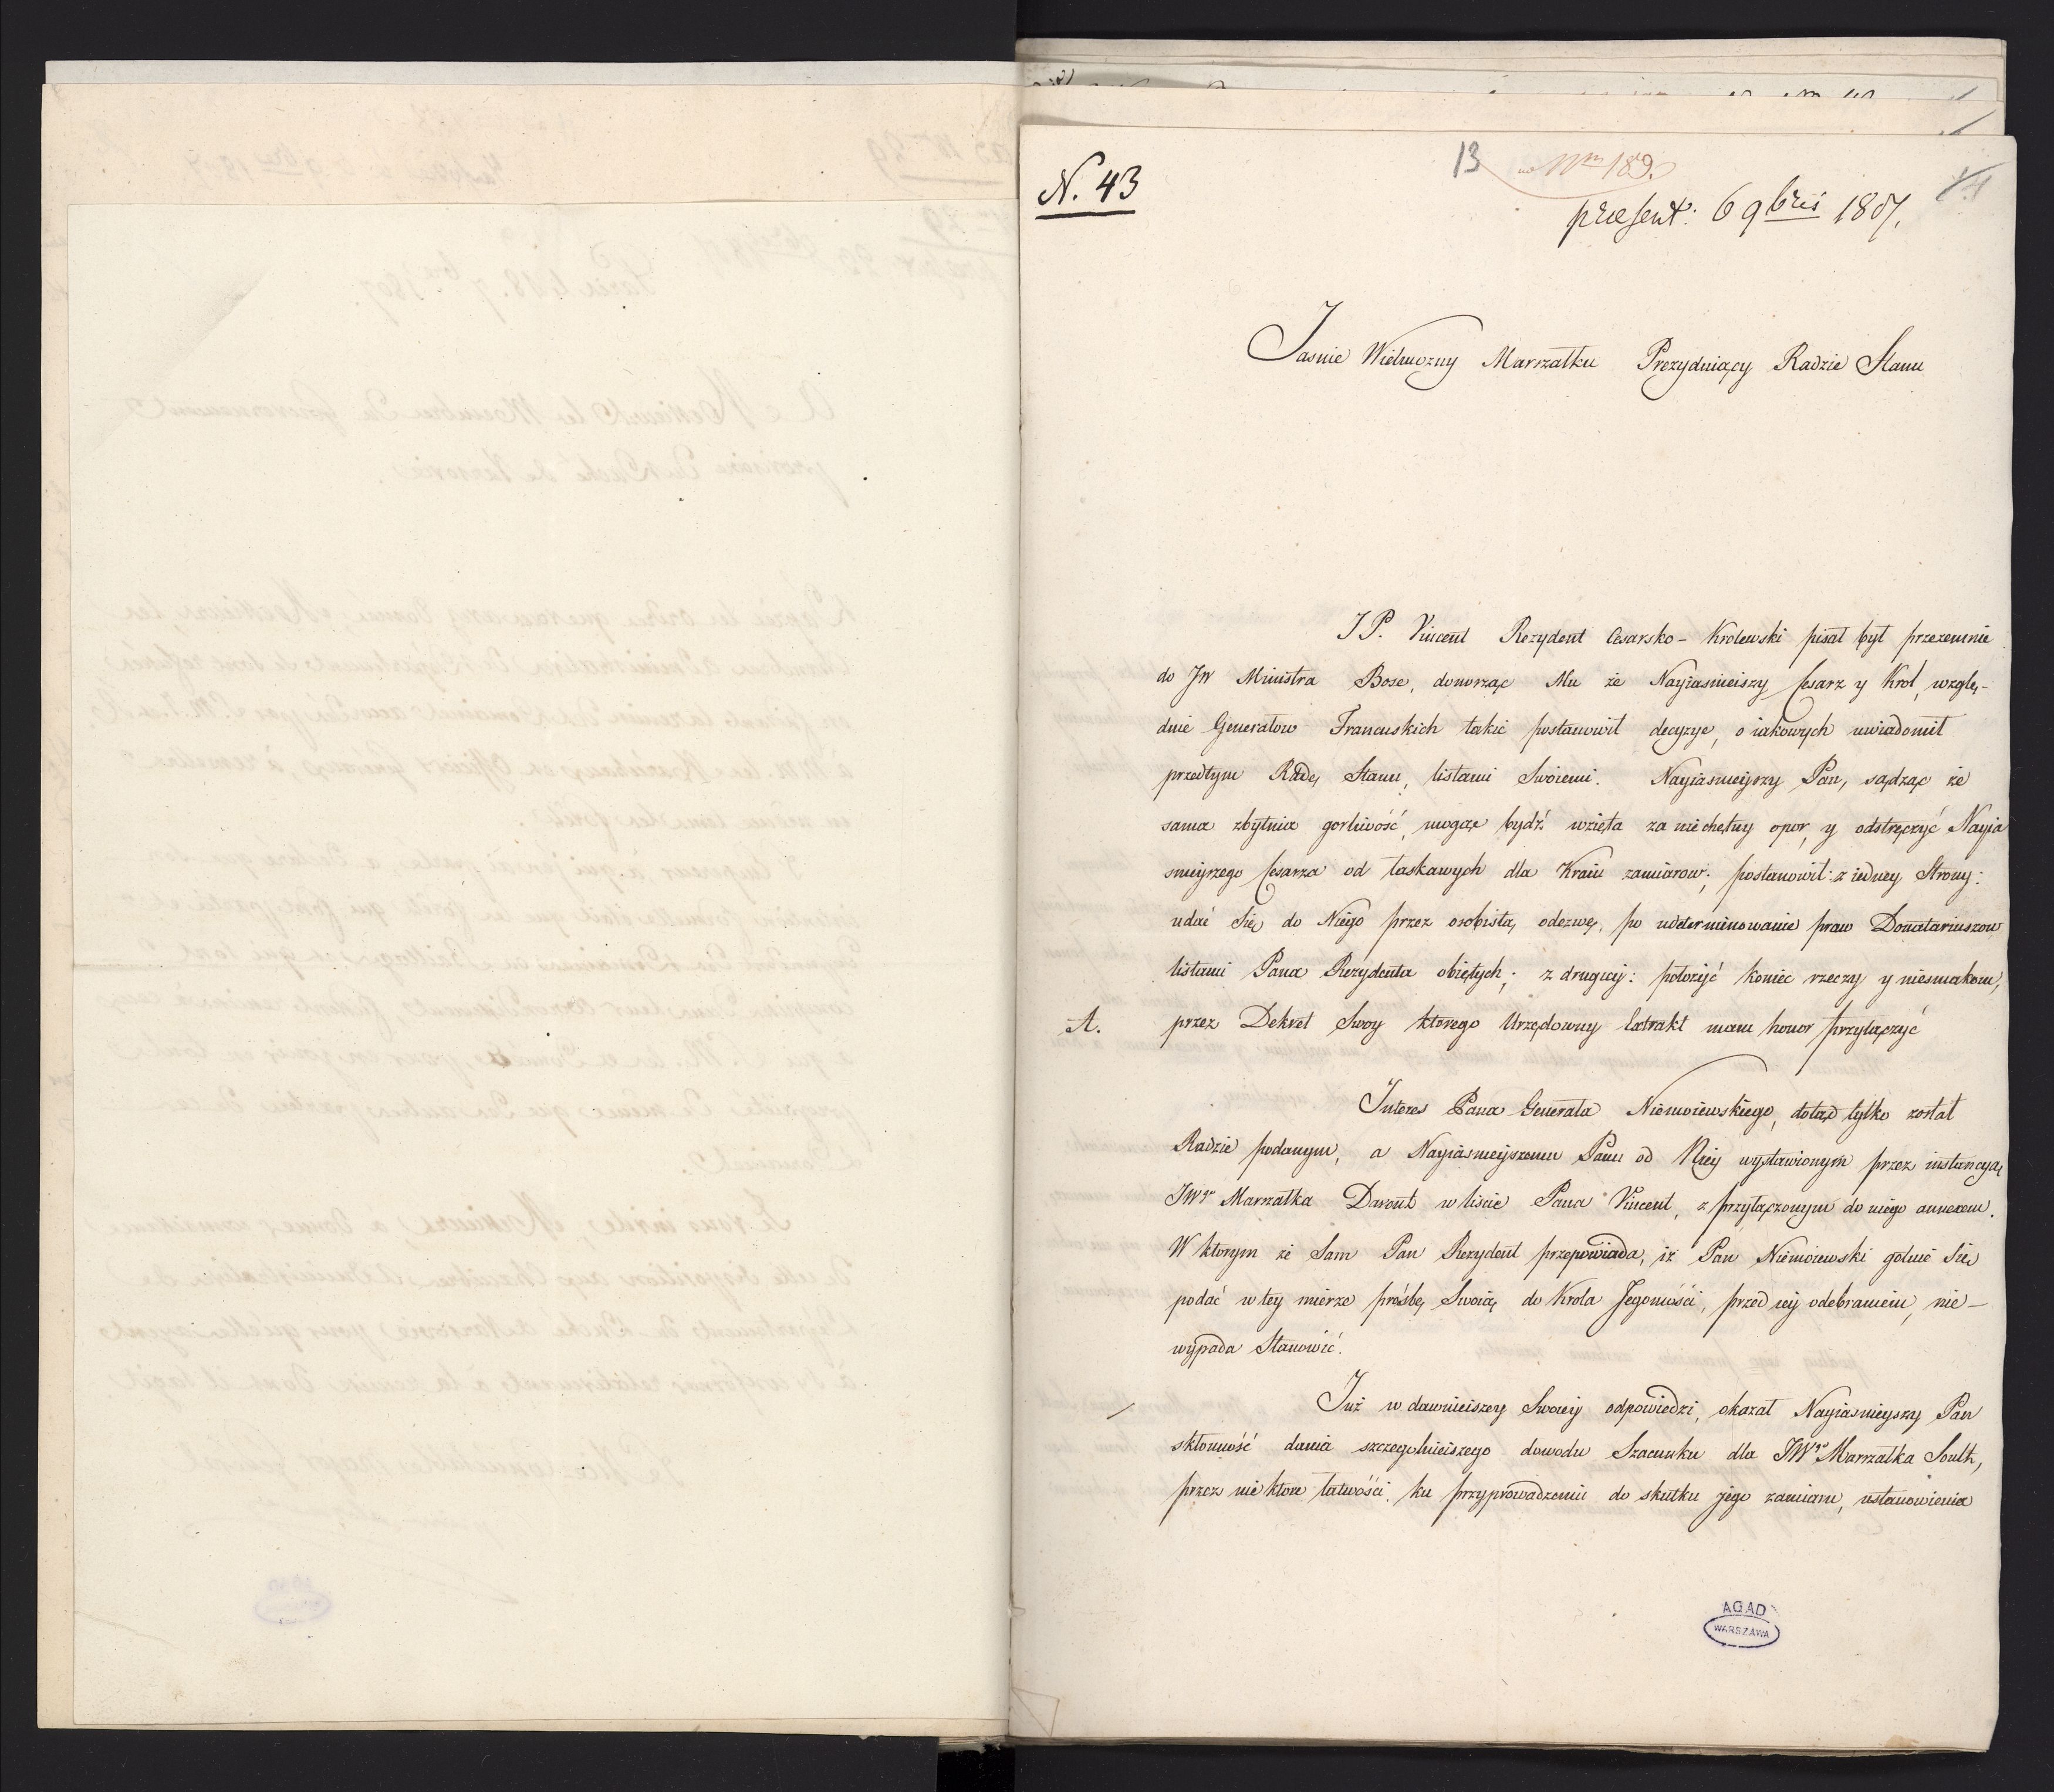 N. 43
13
ad Nrm 189.
præsent: 6 9bris 1807.
Jasnie Wielmozny Marszałku Prezyduiący Radzie Stanu
J P. Vincent Rezydent Cesarsko-Krolewski pisał był przezemnie
do JW Ministra Bose, donosząc Mu że Nayiasnieiszy Cesarz y Krol, wzglę-
dnie Generałow Francuskich takie postanowił decyzye, o iakowych uwiadomił
przedtym Radę Stanu, listami Swoiemi. Nayiasnieyszy Pan, sądząc że
sama zbytnia gorliwość, mogąc bydź wzięta za niechętny opor, y odstręczyć Nayia
snieyszego Cesarza od łaskawych dla Kraiu zamiarow; postanowił: z iedney Strony:
udać Się do Niego przez osobistą odezwę, po udeterminowanie praw Donatariuszow
listami Pana Rezydenta obiętych; z drugiey: położyć koniec rzeczy y niesmakom,
A. przez Dekret Swoy ktorego Urzędowny Extrakt mam honor przyłączyć
Interes Pana Generała Niemoiewskiego, dotąd tylko został
Radzie podanym, a Nayiasnieyszemu Panu od Niey wystawionym przez instancyą
JWgo Marszałka Davout w liscie Pana Vincent, z przyłączonym do niego annexem.
W ktorym że Sam Pan Rezydent przepowiada, iż Pan Niemoiewski gotuie Się
podać w tey mierze prośbę Swoią do Krola Jegomości, przed iey odebraniem, nie-
wypada Stanowić.
Już w dawnieiszey Swoiey odpowiedzi, okazał Nayiasnieyszy Pan
skłonność dania szczegolnieiszego dowodu Szacunku dla JWgo Marszałka Soult,
przez niektore łatwości, ku przyprowadzeniu do skutku jego zamiaru, ustanowienia
AGAD
WARSZAWA